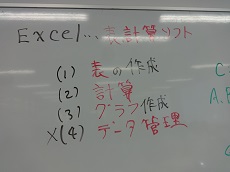 Excel... 表計算ソフト
(1) 表の作成
(2) 計算
(3) グラフ作成
×(4) データ管理
C
A.